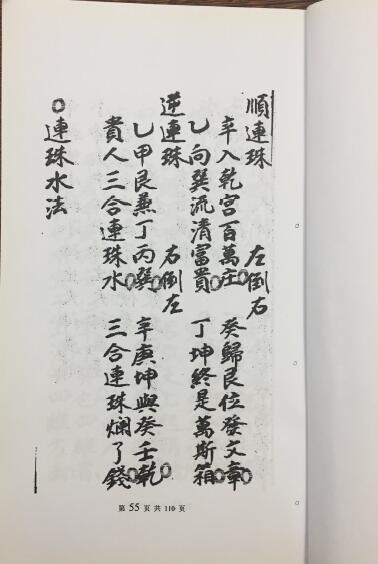 順連珠 左倒右
辛入乾宮百萬庄 癸歸艮位發文章
乙向巽流清富貴 丁坤終是萬斯箱
逆連珠 右倒左
乙甲艮兼丁丙巽 辛庚坤與癸壬乾
貴人三合連珠水 三合連珠爛了錢
○連珠水法
第 55 页 共 110 页